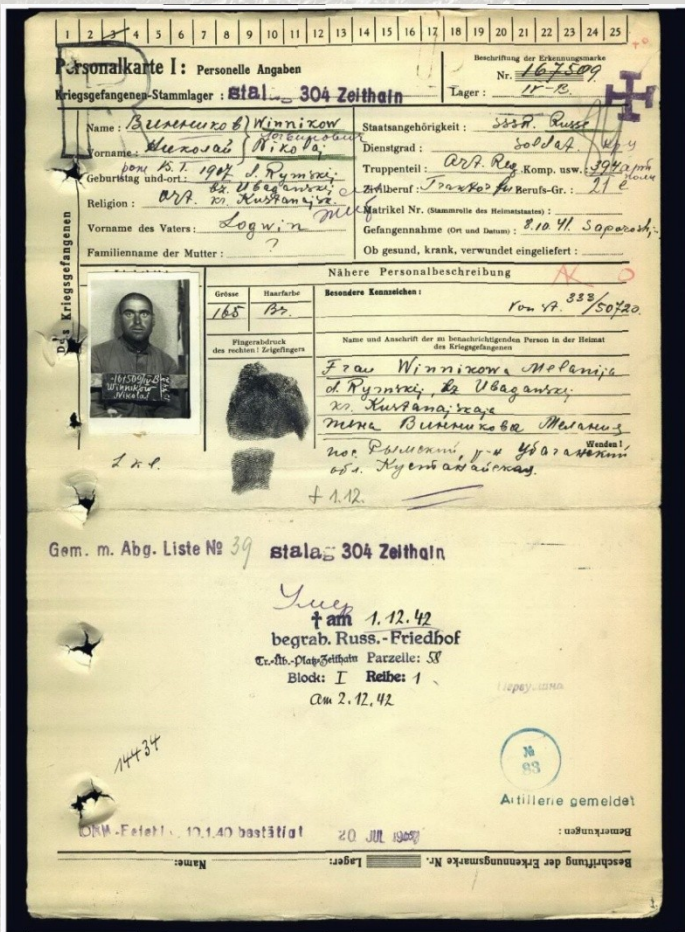 1 2 3 4 5 6 7 8 9 10 11 12 13 14 15 16 17 18 19 20 21 22 23 24 25
Personalkarte I: Personelle Angaben
Kriegsgefangenen-Stammlager: Stalag 304 Zeithain
Beschriftung der Erkennungsmarke
Nr. 167509
Lager: IV-B.
Des Kriegsgefangenen
Name: Винников Winnikow
Vorname: Николай Nikolaj
Geburtstag und -ort: 15.1.1907 d. Rymskij,
bz. Ubaganskij
Religion: Ort. kr. Kustanajsk.
Vorname des Vaters: Logwin
Familienname der Mutter: ?
Staatsangehörigkeit: Russe
Dienstgrad: Soldat
Truppenteil: Art. Reg. Komp. usw.: 394
Zivilberuf: Berufs-Gr.: 21
Matrikel Nr. (Stammrolle des Heimatstaates):
Gefangennahme (Ort und Datum): 8.10.41. Saporosh,
Ob gesund, krank, verwundet eingeliefert:
Nähere Personalbeschreibung
Grösse Haarfarbe
165 Br.
Fingerabdruck
des rechten! Zeigefingers
Besondere Kennzeichen:
333/50720.
Name und Anschrift der zu benachrichtigenden Person in der Heimat
des Kriegsgefangenen
Frau Winnikowa Melanija
d. Rymskij, bz Ubaganskij
kr. Kustanajskaja
жена Винникова Мелания
Wenden!
пос. Рымский, р-н Убаганский
обл. Кустанайская.
Winnikow
Nikolai
† 1.12.
Gem. m. Abg. Liste № 39 Stalag 304 Zeithain
Умер
† am 1.12.42
begrab. Russ.-Friedhof
Tr.-Üb.-Platz Zeithain Parzelle: 58
Block: I Reihe: 1
Am 2.12.42
14434
№
83
Artillerie gemeldet
10.1.40 bestätigt 20 JUL
Bemerkungen:
Name: Lager: Beschriftung der Erkennungsmarke Nr.